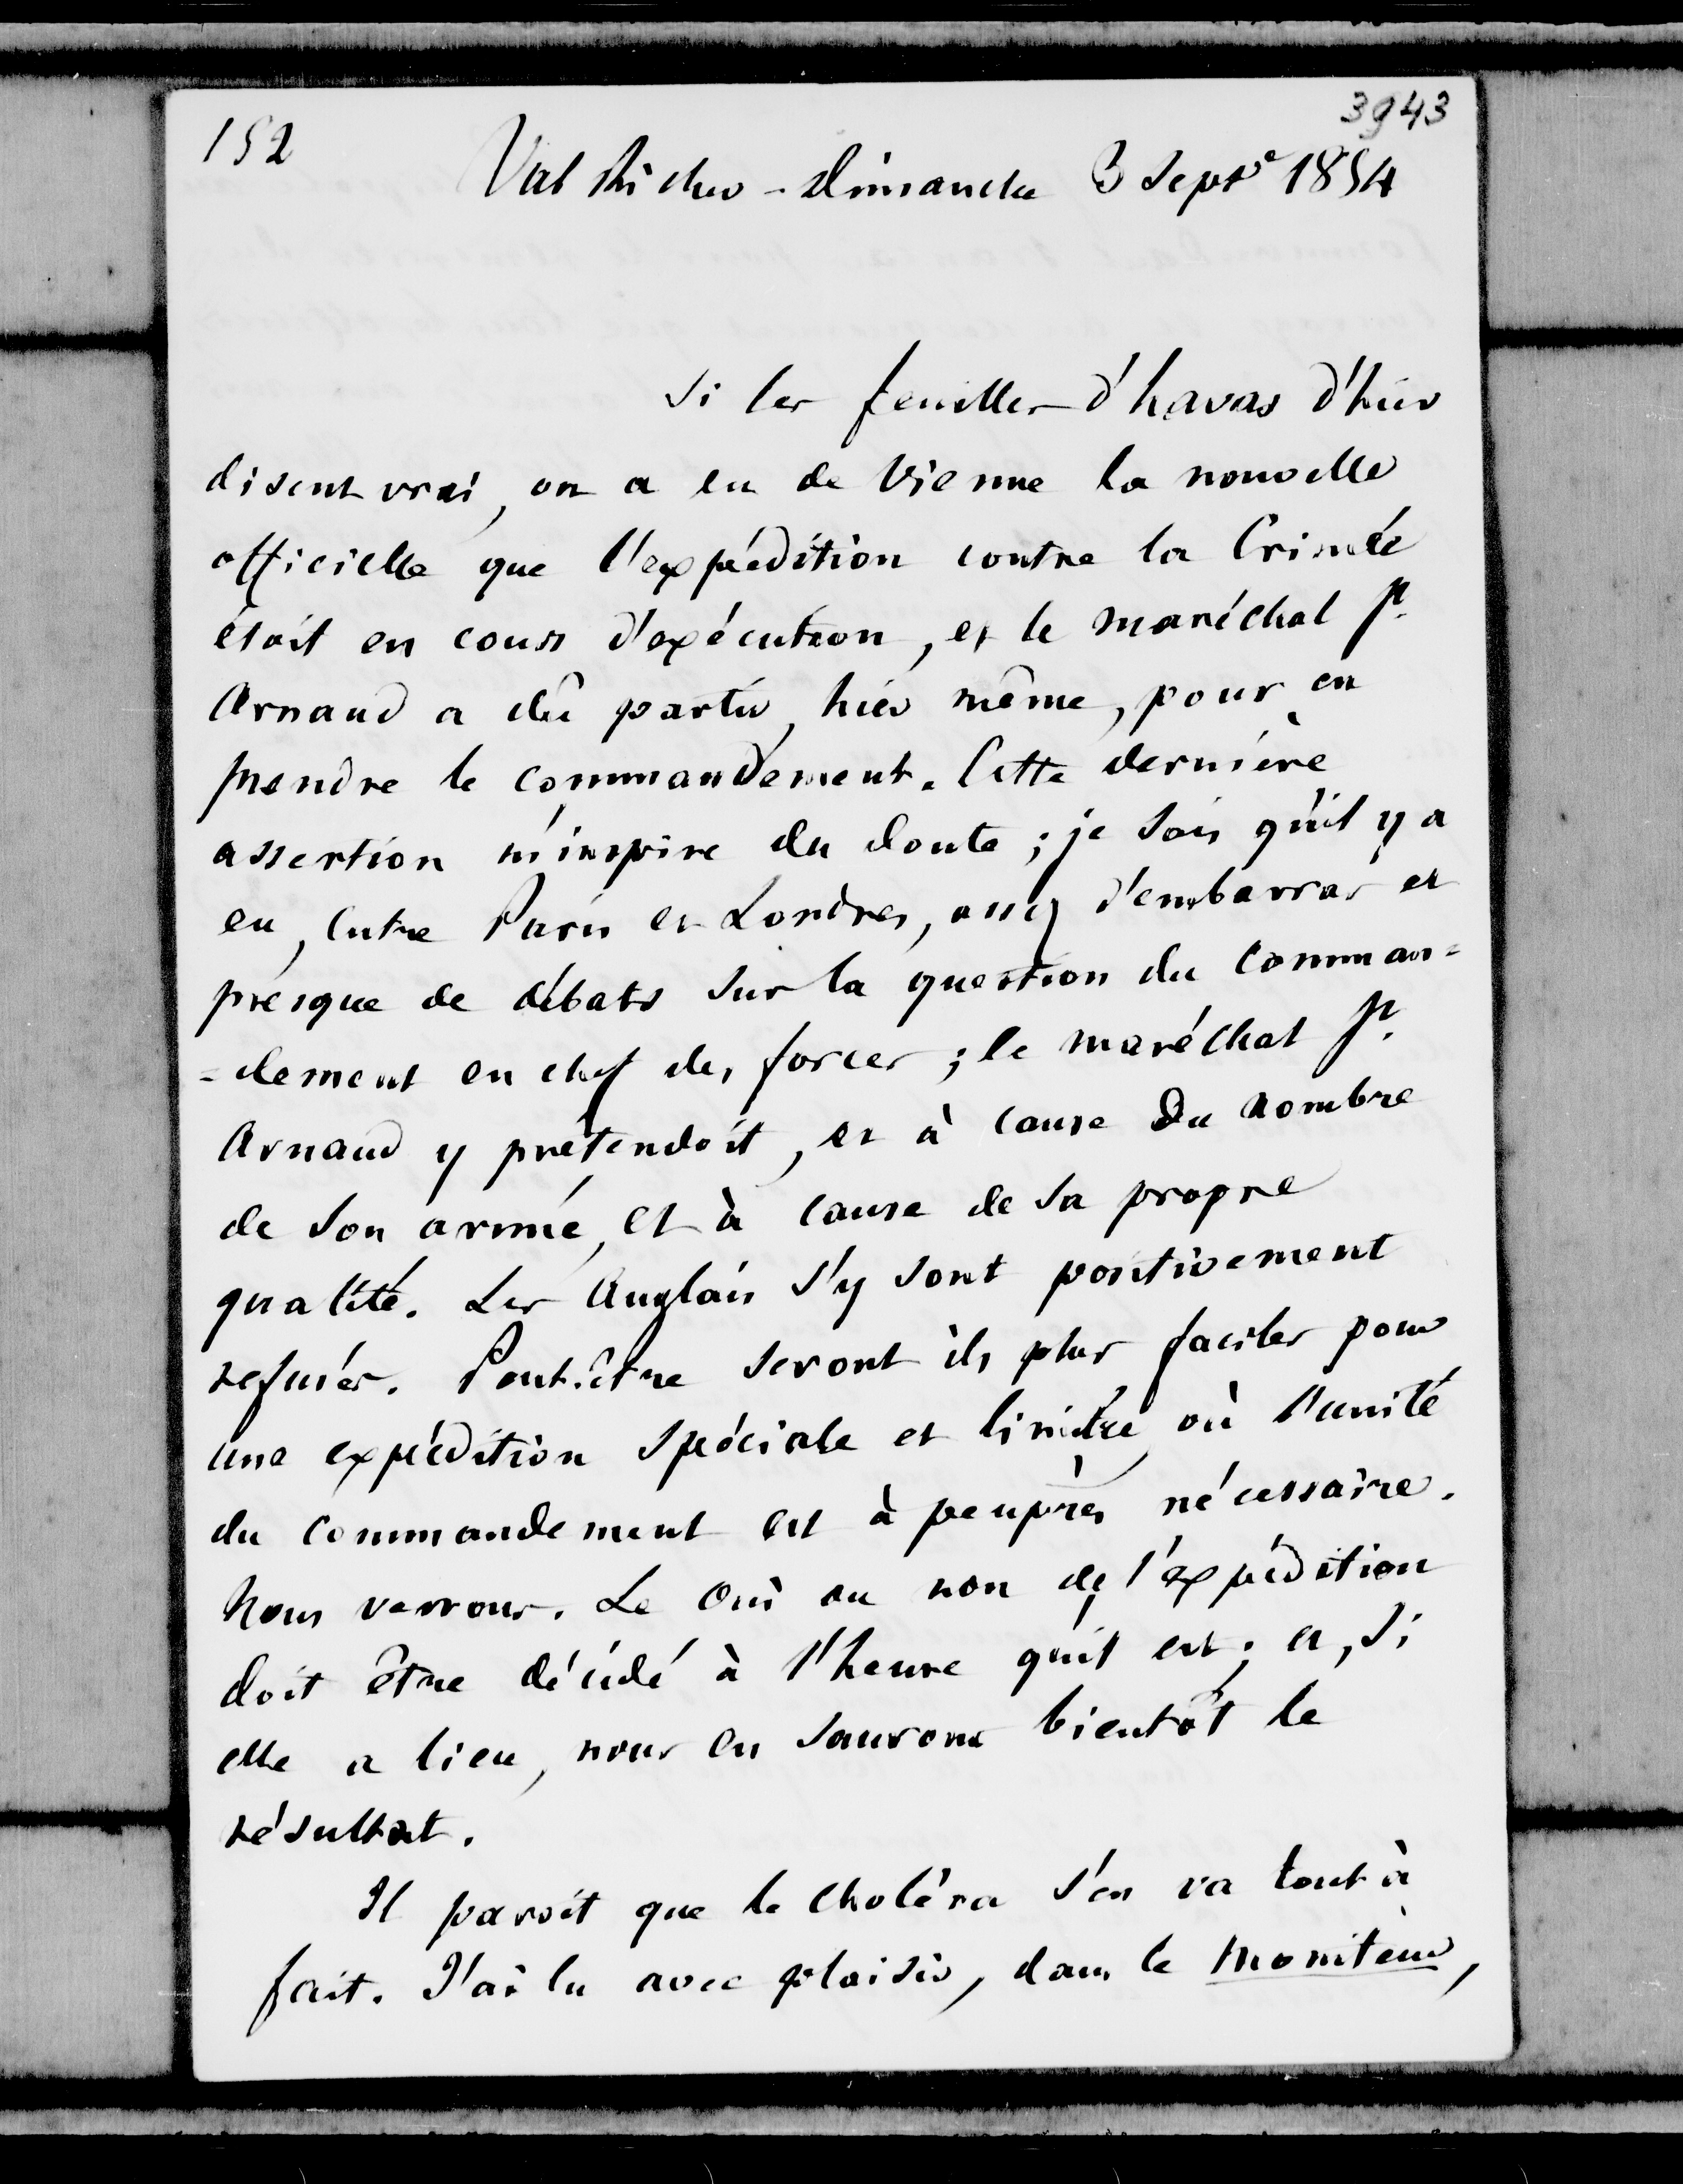 3943
152
Val Richer - Dimanche 3 Septe 1854
Si les feuilles d'havas d'hier
disent vrai, on a eu de Vienne la nouvelle
officielle que l'expédition contre la Crimée
étoit en cours d'exécution, et le maréchal St.
Arnaud a dû partir, hier même, pour en
prendre le commandement. Cette dernière
assertion m'inspire du doute ; je sais qu'il y a
eu, entre Paris et Londres, assez d'embarras et
presque de débats sur la question du comman=
=dement en chef des forces ; le maréchal St.
Arnaud y prétendoit, et à cause du nombre
de son armée, et à cause de sa propre
qualité. Les Anglais s'y sont positivement
refusés. Peut-être seront ils plus faciles pour
une expédition spéciale et limitée où l'unité
du commandement est à peu près nécessaire.
Nous verrons. Le oui ou non de l'expédition
doit être décidé à l'heure qu'il est ; et, si
elle a lieu, nous en saurons bientôt le
résultat.
Il paroit que le choléra s'en va tout à
fait. J'ai lu avec plaisir, dans le Moniteur,